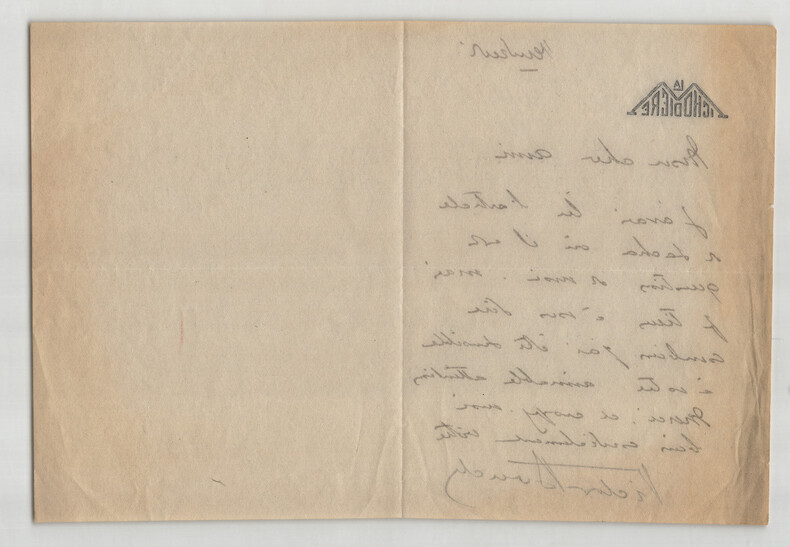 LA
MICHODIÈRE
Mon cher ami
J'avais lu l'article
de Sacha où il est
question de moi. mais
je tiens à vous dire
combien j'ai été sensible
à votre aimable attention
Merci. et croyez moi
bien cordialement vôtre
Victor Boucher